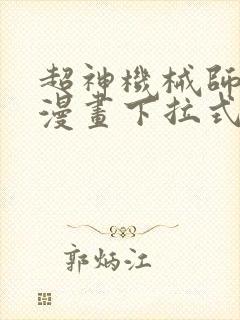 超神機械師
漫畫下拉式
郭炳江